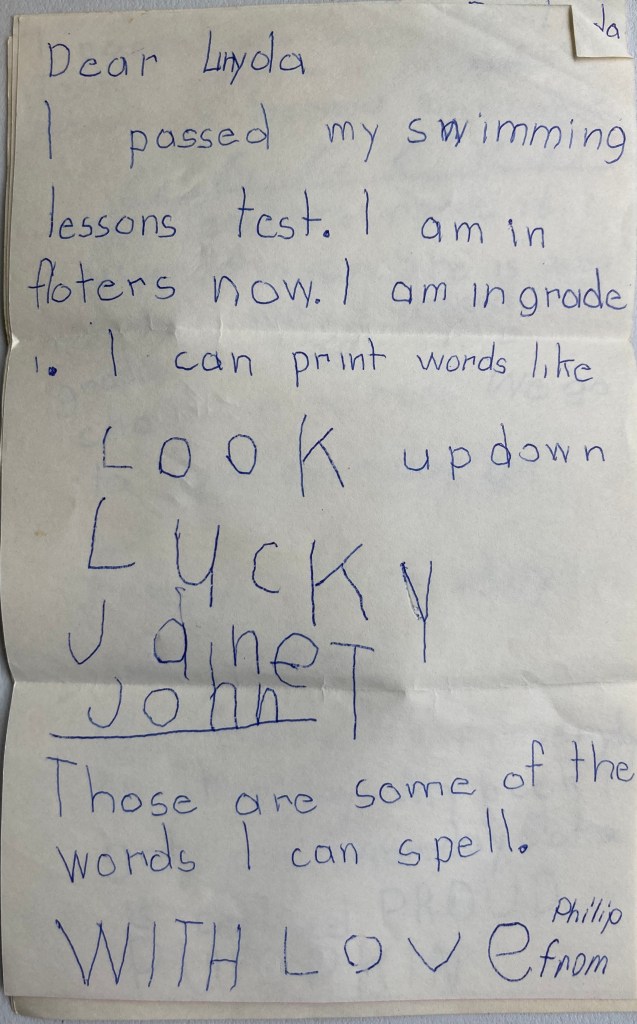 Ja
Dear Lynda
I passed my swimming
lessons test. I am in
floters now. I am in grade
1. I can print words like
LOOK up down
LycKy
JaineT
John
Those are some of the
words I can spell.
WITH LOVe from
Philip